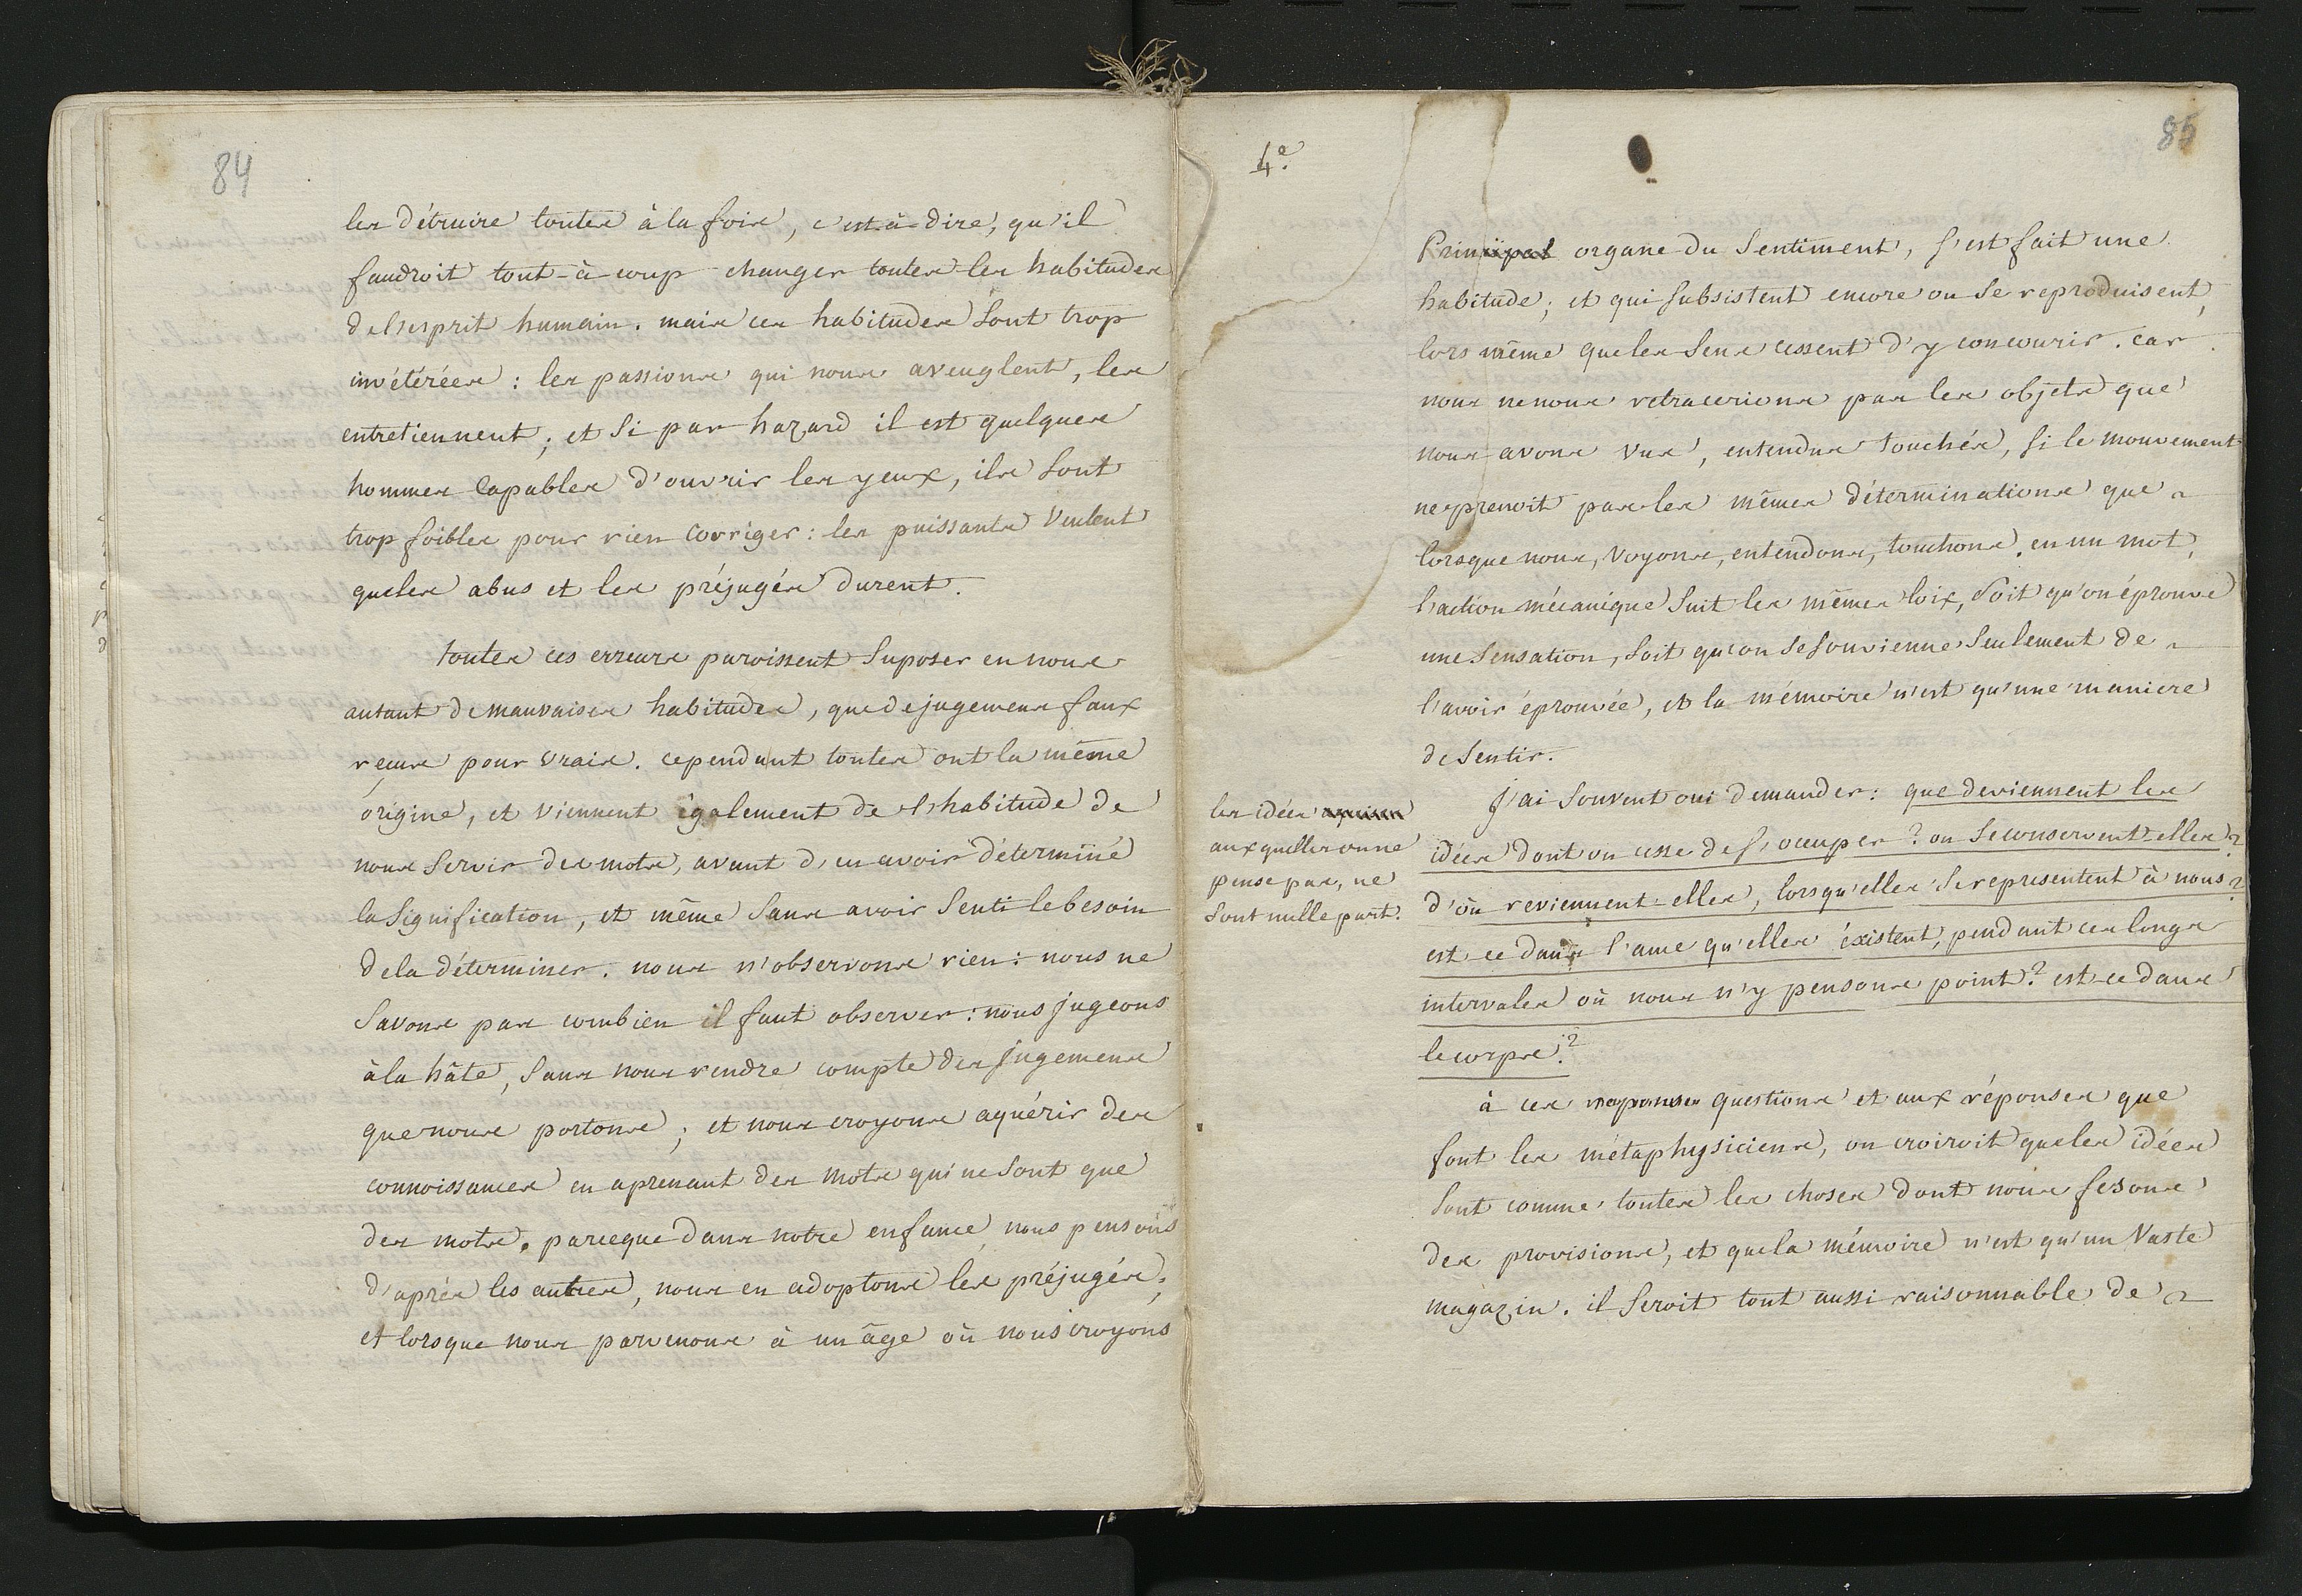 84
les détruire toutes à la fois, c'est-à-dire, qu'il
faudroit tout-à-coup changer toutes les habitudes
de l'esprit humain. mais ces habitudes sont trop
invétérées : les passions qui nous aveuglent, les
entretiennent ; et si par hazard il est quelques
hommes capables d'ouvrir les yeux, ils sont
trop foibles pour rien corriger : les puissants veulent
que les abus et les préjugés durent.
toutes ces erreurs paroissent suposer en nous
autant de mauvaises habitudes, que de jugemens faux
reçus pour vrais. cependant toutes ont la même
origine, et viennent également de l'habitude de
nous servir des mots, avant d'en avoir déterminé
la signification, et même sans avoir senti le besoin
de la déterminer. nous n'observons rien : nous ne
savons pas combien il faut observer : nous jugeons
à la hâte, sans nous rendre compte des jugemens
que nous portons ; et nous croyons aquérir des
connoissances en aprenant des mots qui ne sont que
des mots. parceque dans notre enfance, nous pensons
d'après les autres, nous en adoptons les préjugés ;
et lorsque nous parvenons à un âge où nous croyons
4e.
85
Principal organe du sentiment, s'est fait une
habitude ; et qui subsistent encore ou se reproduisent,
lors même que les sens cessent d'y concourir. car
nous ne nous retracerions pas les objets que
nous avons vus, entendus touchés, si le mouvement
ne prenoit pas les mêmes déterminations que
lorsque nous, voyons, entendons, touchons. en un mot,
l'action mécanique suit les mêmes loix, soit qu'on éprouve
une sensation, soit qu'on se souvienne seulement de
l'avoir éprouvée, et la mémoire n'est qu'une maniere
de sentir.
les idées
auxquelles on ne
pense pas, ne
sont nulle part.
j'ai souvent oui demander : que deviennent les
idées dont on cesse de s'occuper ? ou se conservent-elles ?
d'où reviennent-elles, lorsqu'elles se representent à nous ?
est-ce dans l'ame qu'elles existent, pendant ces longs
intervales où nous n'y pensons point ? est-ce dans
le corps ?
à ces reponses questions et aux réponses que
font les métaphysiciens, on croiroit que les idées
sont comme toutes les choses dont nous fesons
des provisions, et que la mémoire n'est qu'un vaste
magazin. il seroit tout aussi raisonnable de